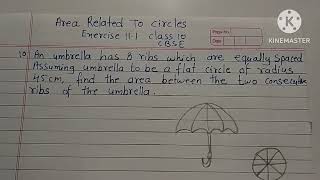 Area Related To circles
Exercise 11.1 class 10
CBSE
10) An umbrella has 8 ribs which are equally spaced
Assuming umbrella to be a flat circle of radius
45cm, find the area between the two consecutive
ribs of the umbrella.
Date
KINEMASTER